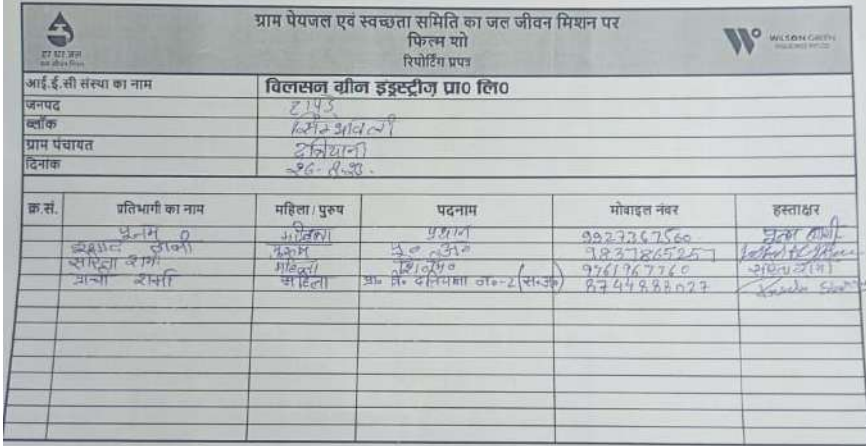 ग्राम पेयजल एवं स्वच्छता समिति का जल जीवन मिशन पर
फिल्म शो
रिपोर्टिंग प्रपत्र
हर घर जल
जल जीवन मिशन
WILSON GREEN
आई.ई.सी संस्था का नाम विलसन ग्रीन इंडस्ट्रीज़ प्रा० लि०
जनपद हापुड़
ब्लॉक सिम्भावली
ग्राम पंचायत दतियाना
दिनांक 26-8-23
क्र.सं. प्रतिभागी का नाम महिला / पुरुष पदनाम मोबाइल नंबर हस्ताक्षर
पूनम महिला प्रधान 9927367560 पूनम
पुरुष प्र० अ० 9837865257
सरिता शर्मा महिला शि०मि० 9761967760 सरिता शर्मा
प्राची शर्मा महिला प्रा० वि० दतियाना नं०-2 (स०अ०) 8744883027